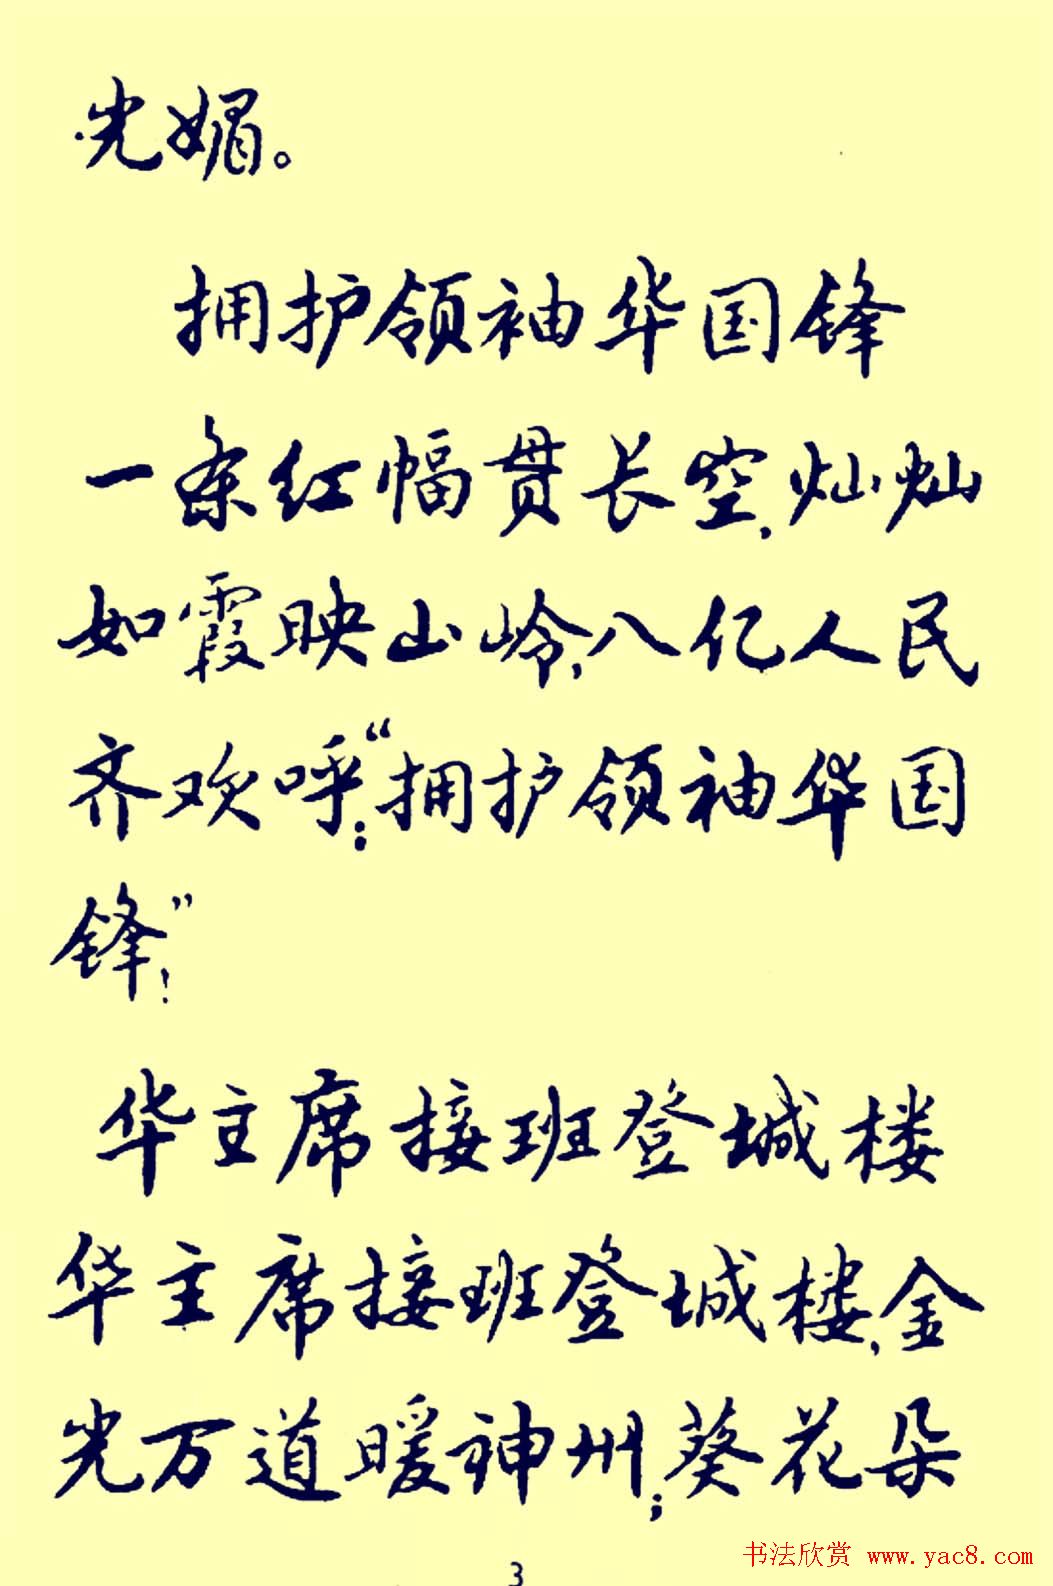 光媚。
拥护领袖华国锋
一条红幅贯长空，灿灿
如霞映山岭，八亿人民
齐欢呼：“拥护领袖华国
锋”！
华主席接班登城楼
华主席接班登城楼，金
光万道暖神州；葵花朵
3
书法欣赏 www.yac8.com